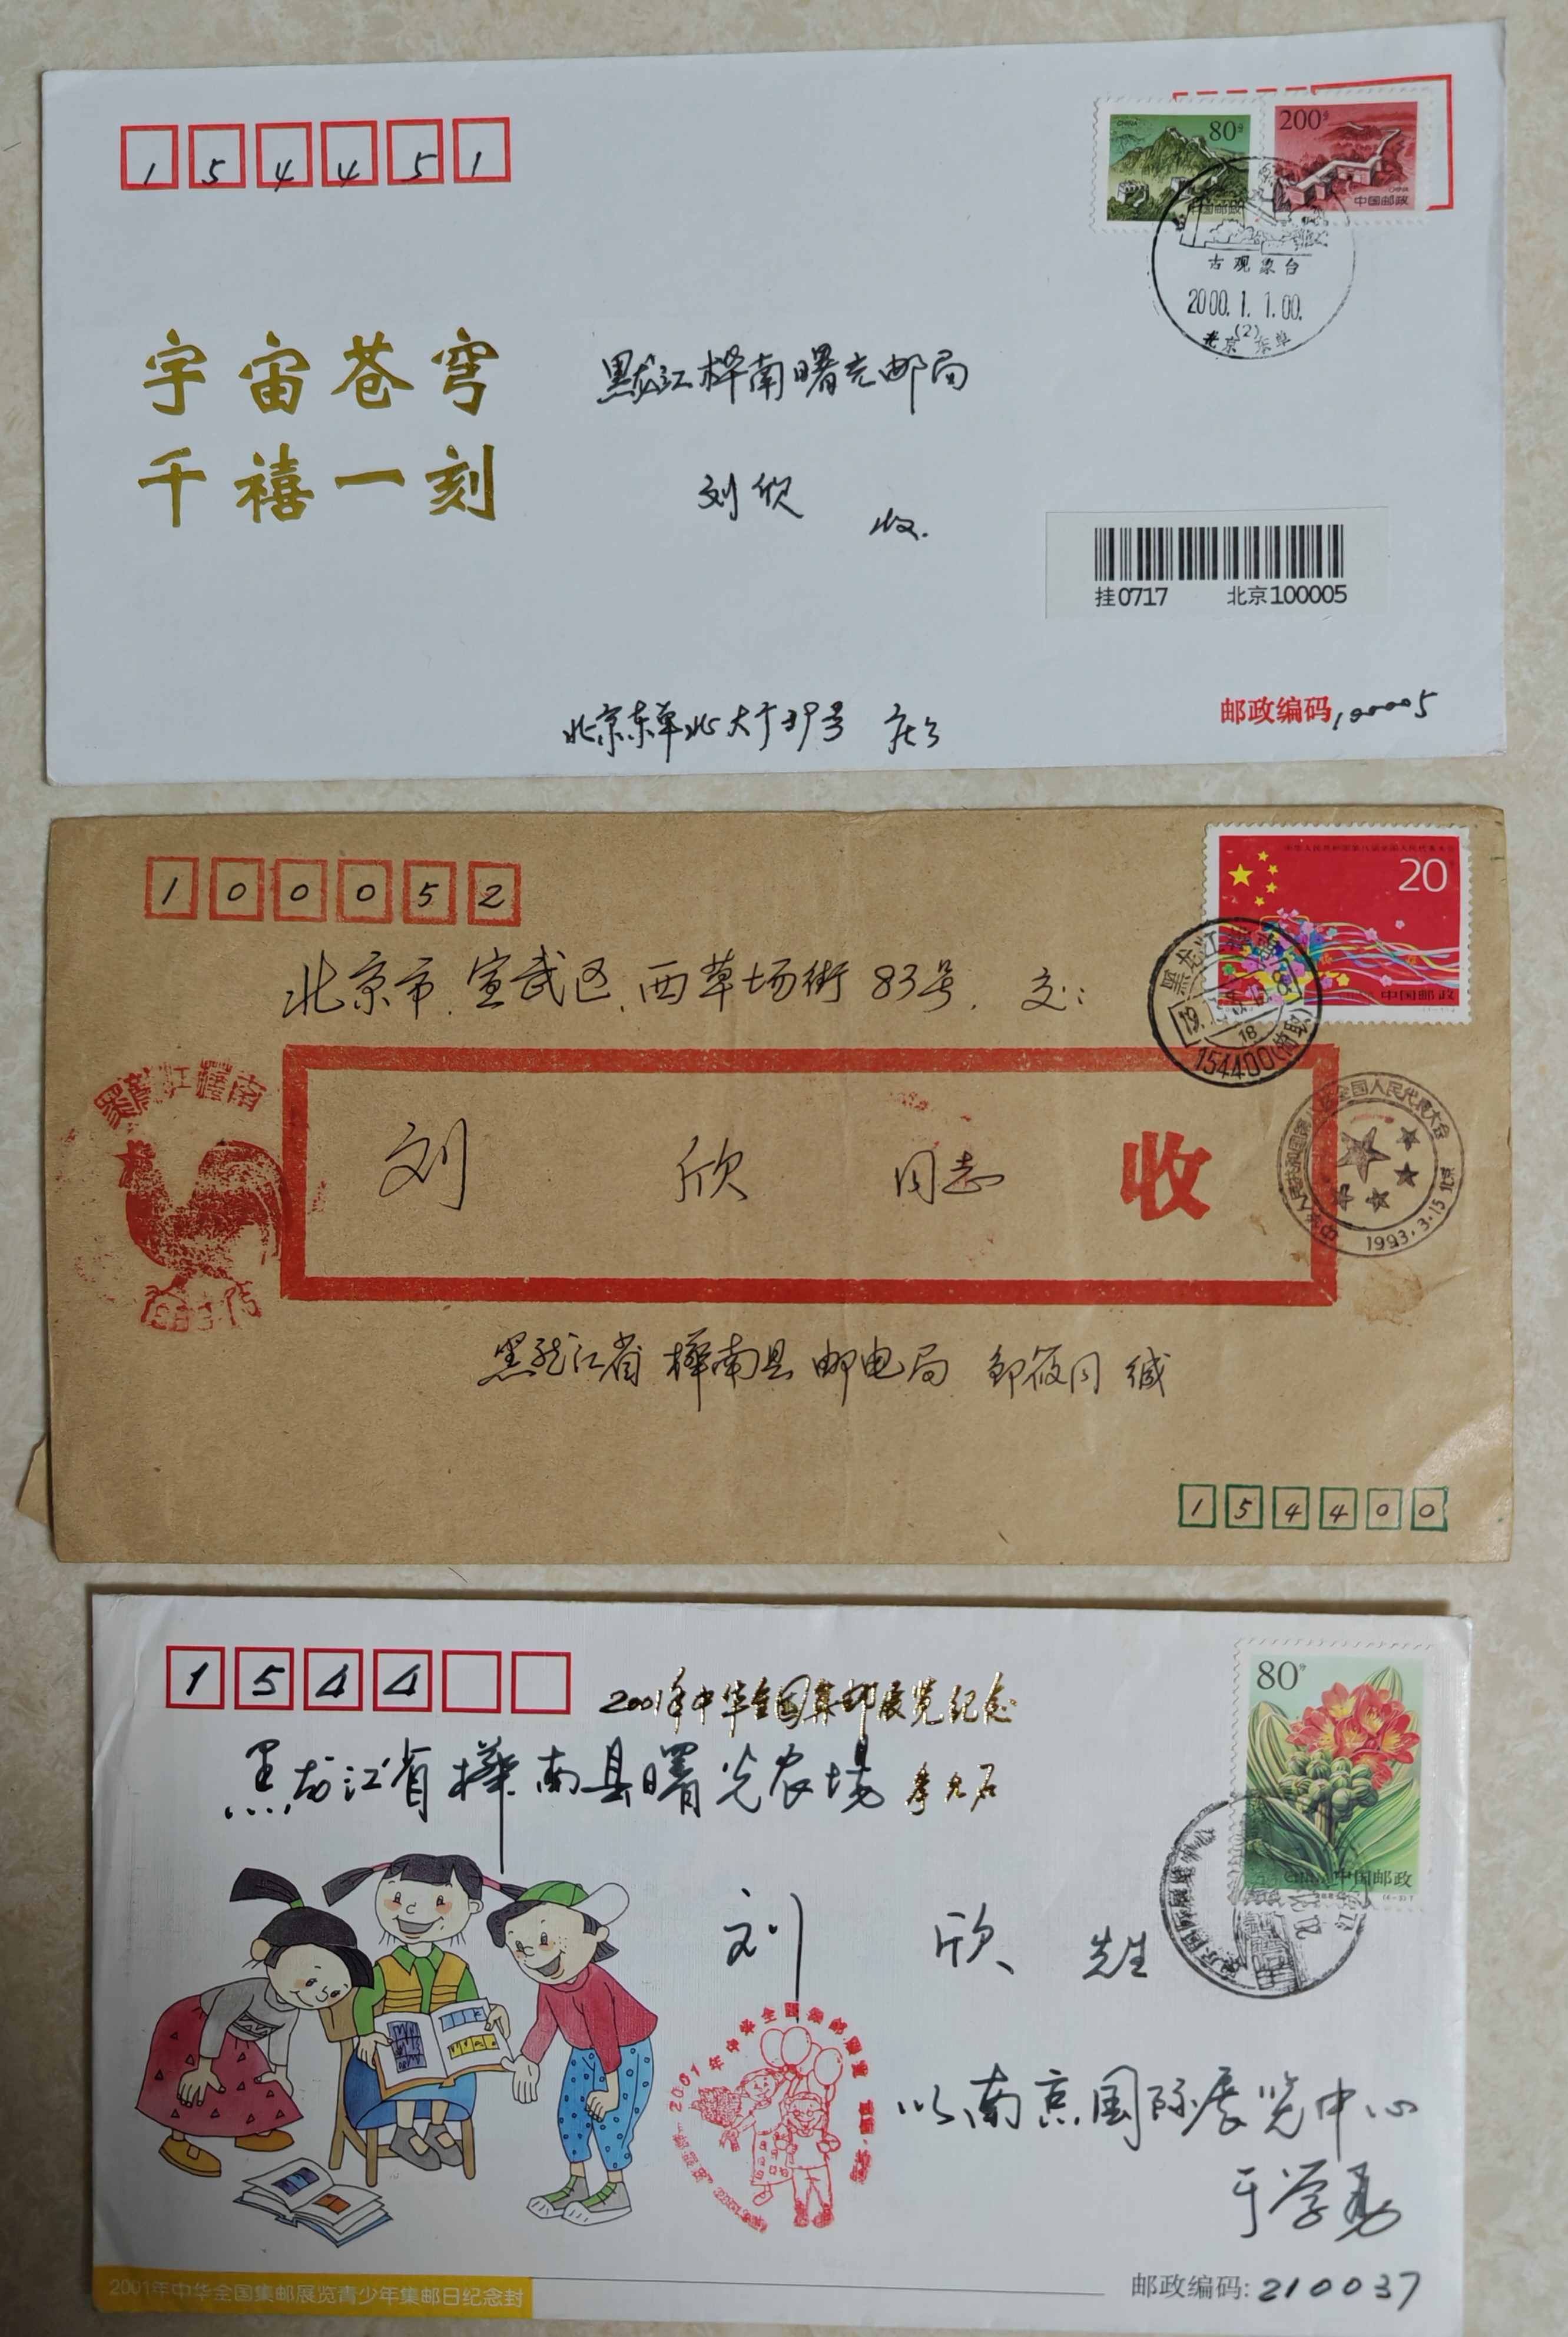 154451
CHINA
80分
200分
CHINA
中国邮政
中国邮政
古观象台
2000.1.1.00.
(2)
北京 东单
宇宙苍穹
千禧一刻
黑龙江桦南曙光邮局
刘欣 收.
挂0717 北京100005
北京东单北大于39号
邮政编码100005
100052
中华人民共和国第八届全国人民代表大会
20
中国邮政
北京市.宣武区.西草场街83号. 交:
黑龙江桦南
154400
18
刘 欣 同志 收
黑龙江桦南
中华人民共和国第八届全国人民代表大会
1993.3.15 北京
黑龙江省桦南县邮电局 邹筱同 缄
154400
1544
80分
2001年中华全国集邮展览纪念
黑龙江省桦南县曙光农场
中国邮政
刘 欣 先生
2001年中华全国集邮展览
南京国际展览中心
于学勇
2001年中华全国集邮展览青少年集邮日纪念封
邮政编码:210037